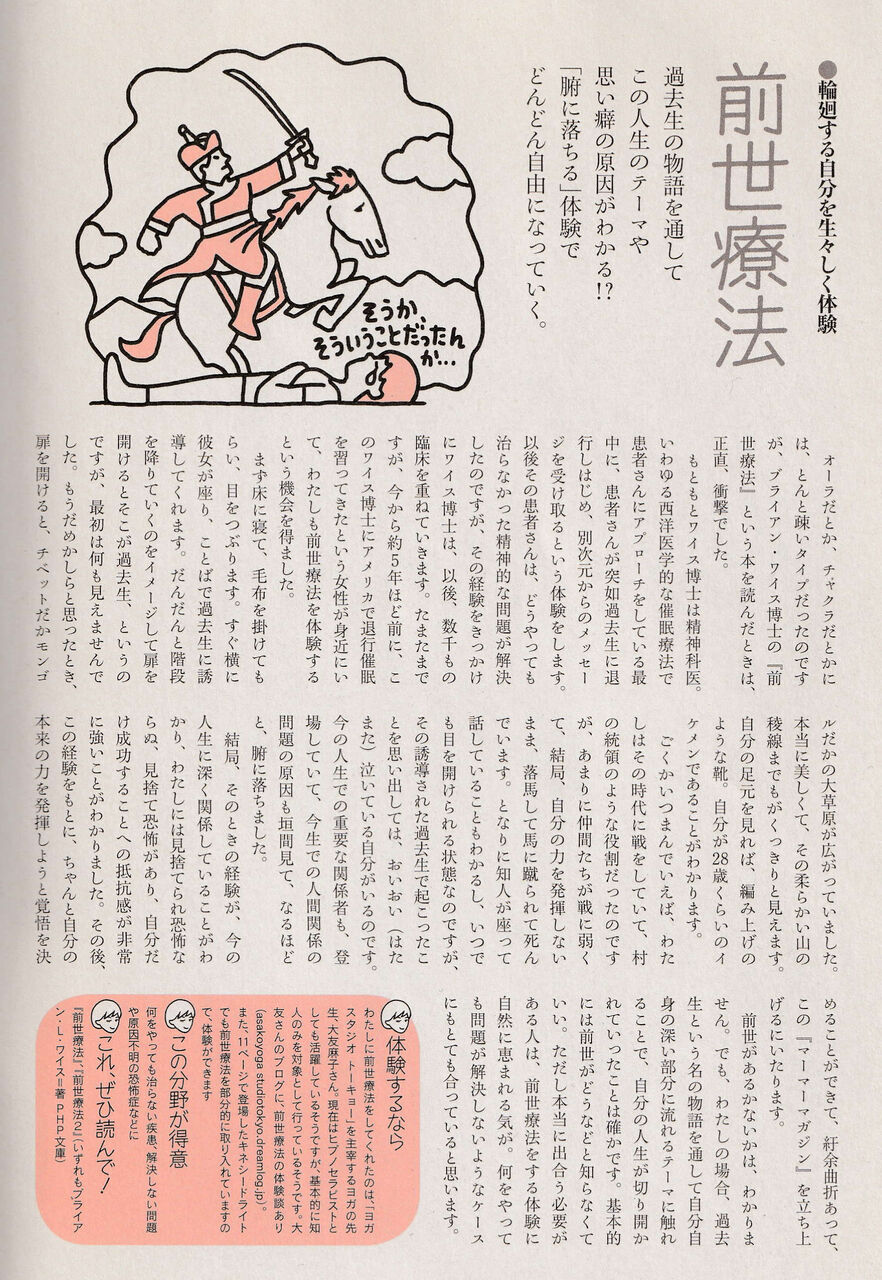 ●輪廻する自分を生々しく体験
前世療法
過去生の物語を通して
この人生のテーマや
思い癖の原因がわかる!?
「腑に落ちる」体験で
どんどん自由になっていく。
そうか、
そういうことだったん
か…
オーラだとか、チャクラだとかに
は、とんと疎いタイプだったのです
が、ブライアン・ワイス博士の『前
世療法』という本を読んだときは、
正直、衝撃でした。
もともとワイス博士は精神科医。
いわゆる西洋医学的な催眠療法で
患者さんにアプローチをしている最
中に、患者さんが突如過去生に退
行しはじめ、別次元からのメッセー
ジを受け取るという体験をします。
以後その患者さんは、どうやっても
治らなかった精神的な問題が解決
したのですが、その経験をきっかけ
にワイス博士は、以後、数千もの
臨床を重ねていきます。たまたまで
すが、今から約5年ほど前に、こ
のワイス博士にアメリカで退行催眠
を習ってきたという女性が身近にい
て、わたしも前世療法を体験する
という機会を得ました。
まず床に寝て、毛布を掛けても
らい、目をつぶります。すぐ横に
彼女が座り、ことばで過去生に誘
導してくれます。だんだんと階段
を降りていくのをイメージして扉を
開けるとそこが過去生、というの
ですが、最初は何も見えませんで
した。もうだめかしらと思ったとき、
扉を開けると、チベットだかモンゴ
ルだかの大草原が広がっていました。
本当に美しくて、その柔らかい山の
稜線までもがくっきりと見えます。
自分の足元を見れば、編み上げの
ような靴。自分が28歳くらいのイ
ケメンであることがわかります。
ごくかいつまんでいえば、わた
しはその時代に戦をしていて、村
の統領のような役割だったのです
が、あまりに仲間たちが戦に弱く
て、結局、自分の力を発揮しない
まま、落馬して馬に蹴られて死ん
でいます。となりに知人が座って
話していることもわかるし、いつで
も目を開けられる状態なのですが、
その誘導された過去生で起こったこ
とを思い出しては、おいおい（はた
また）泣いている自分がいるのです。
今の人生での重要な関係者も、登
場していて、今生での人間関係の
問題の原因も垣間見て、なるほど
と、腑に落ちました。
結局、そのときの経験が、今の
人生に深く関係していることがわ
かり、わたしには見捨てられ恐怖な
らぬ、見捨て恐怖があり、自分だ
け成功することへの抵抗感が非常
に強いことがわかりました。その後、
この経験をもとに、ちゃんと自分の
本来の力を発揮しようと覚悟を決
めることができて、紆余曲折あって、
この『マーマーマガジン』を立ち上
げるにいたります。
前世があるかないかは、わかりま
せん。でも、わたしの場合、過去
生という名の物語を通して自分自
身の深い部分に流れるテーマに触れ
ることで、自分の人生が切り開か
れていったことは確かです。基本的
には前世がどうなどと知らなくて
いい。ただし本当に出合う必要が
ある人は、前世療法をする体験に
自然に恵まれる気が。何をやって
も問題が解決しないようなケース
にもとても合っていると思います。
体験するなら
わたしに前世療法をしてくれたのは、「ヨガ
スタジオ トーキョー」を主宰するヨガの先
生、大友麻子さん。現在はヒプノセラピストと
しても活躍しているそうですが、基本的に知
人のみを対象として行っているそうです。大
友さんのブログに、前世療法の体験談あり
(asakoyoga studiotokyo.dreamlog.jp)。
また、11ページで登場したキネシードライト
でも前世療法を部分的に取り入れていますの
で、体験ができます
この分野が得意
何をやっても治らない疾患、解決しない問題
や原因不明の恐怖症などに
これ、ぜひ読んで!
『前世療法』、『前世療法2』（いずれも、ブライア
ン・L・ワイス＝著 PHP文庫）